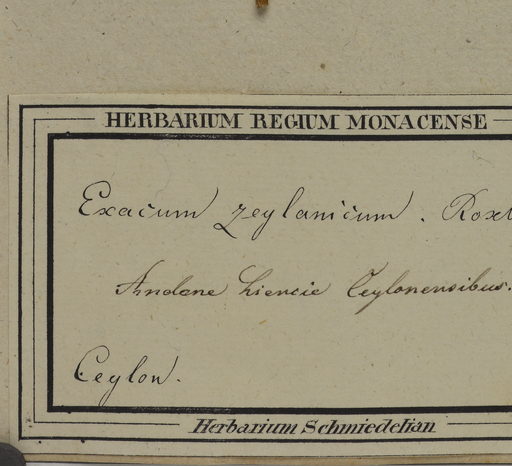 HERBARIUM REGIUM MONACENSE
Exacum zeylanicum. Rox
Ceylonensibus.
Ceylon.
Herbarium Schmiedelian